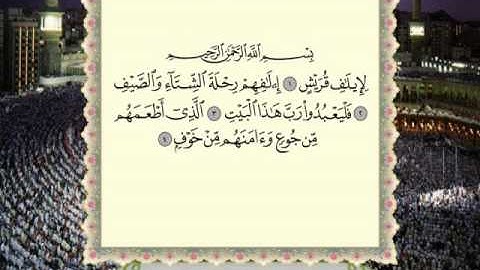 بِسْمِ اللَّهِ الرَّحْمَٰنِ الرَّحِيمِ
لِإِيلَٰفِ قُرَيْشٍ ١ إِۦلَٰفِهِمْ رِحْلَةَ الشِّتَآءِ وَالصَّيْفِ
٢ فَلْيَعْبُدُوا۟ رَبَّ هَٰذَا الْبَيْتِ ٣ الَّذِىٓ أَطْعَمَهُم
مِّن جُوعٍ وَءَامَنَهُم مِّنْ خَوْفٍۭ ٤